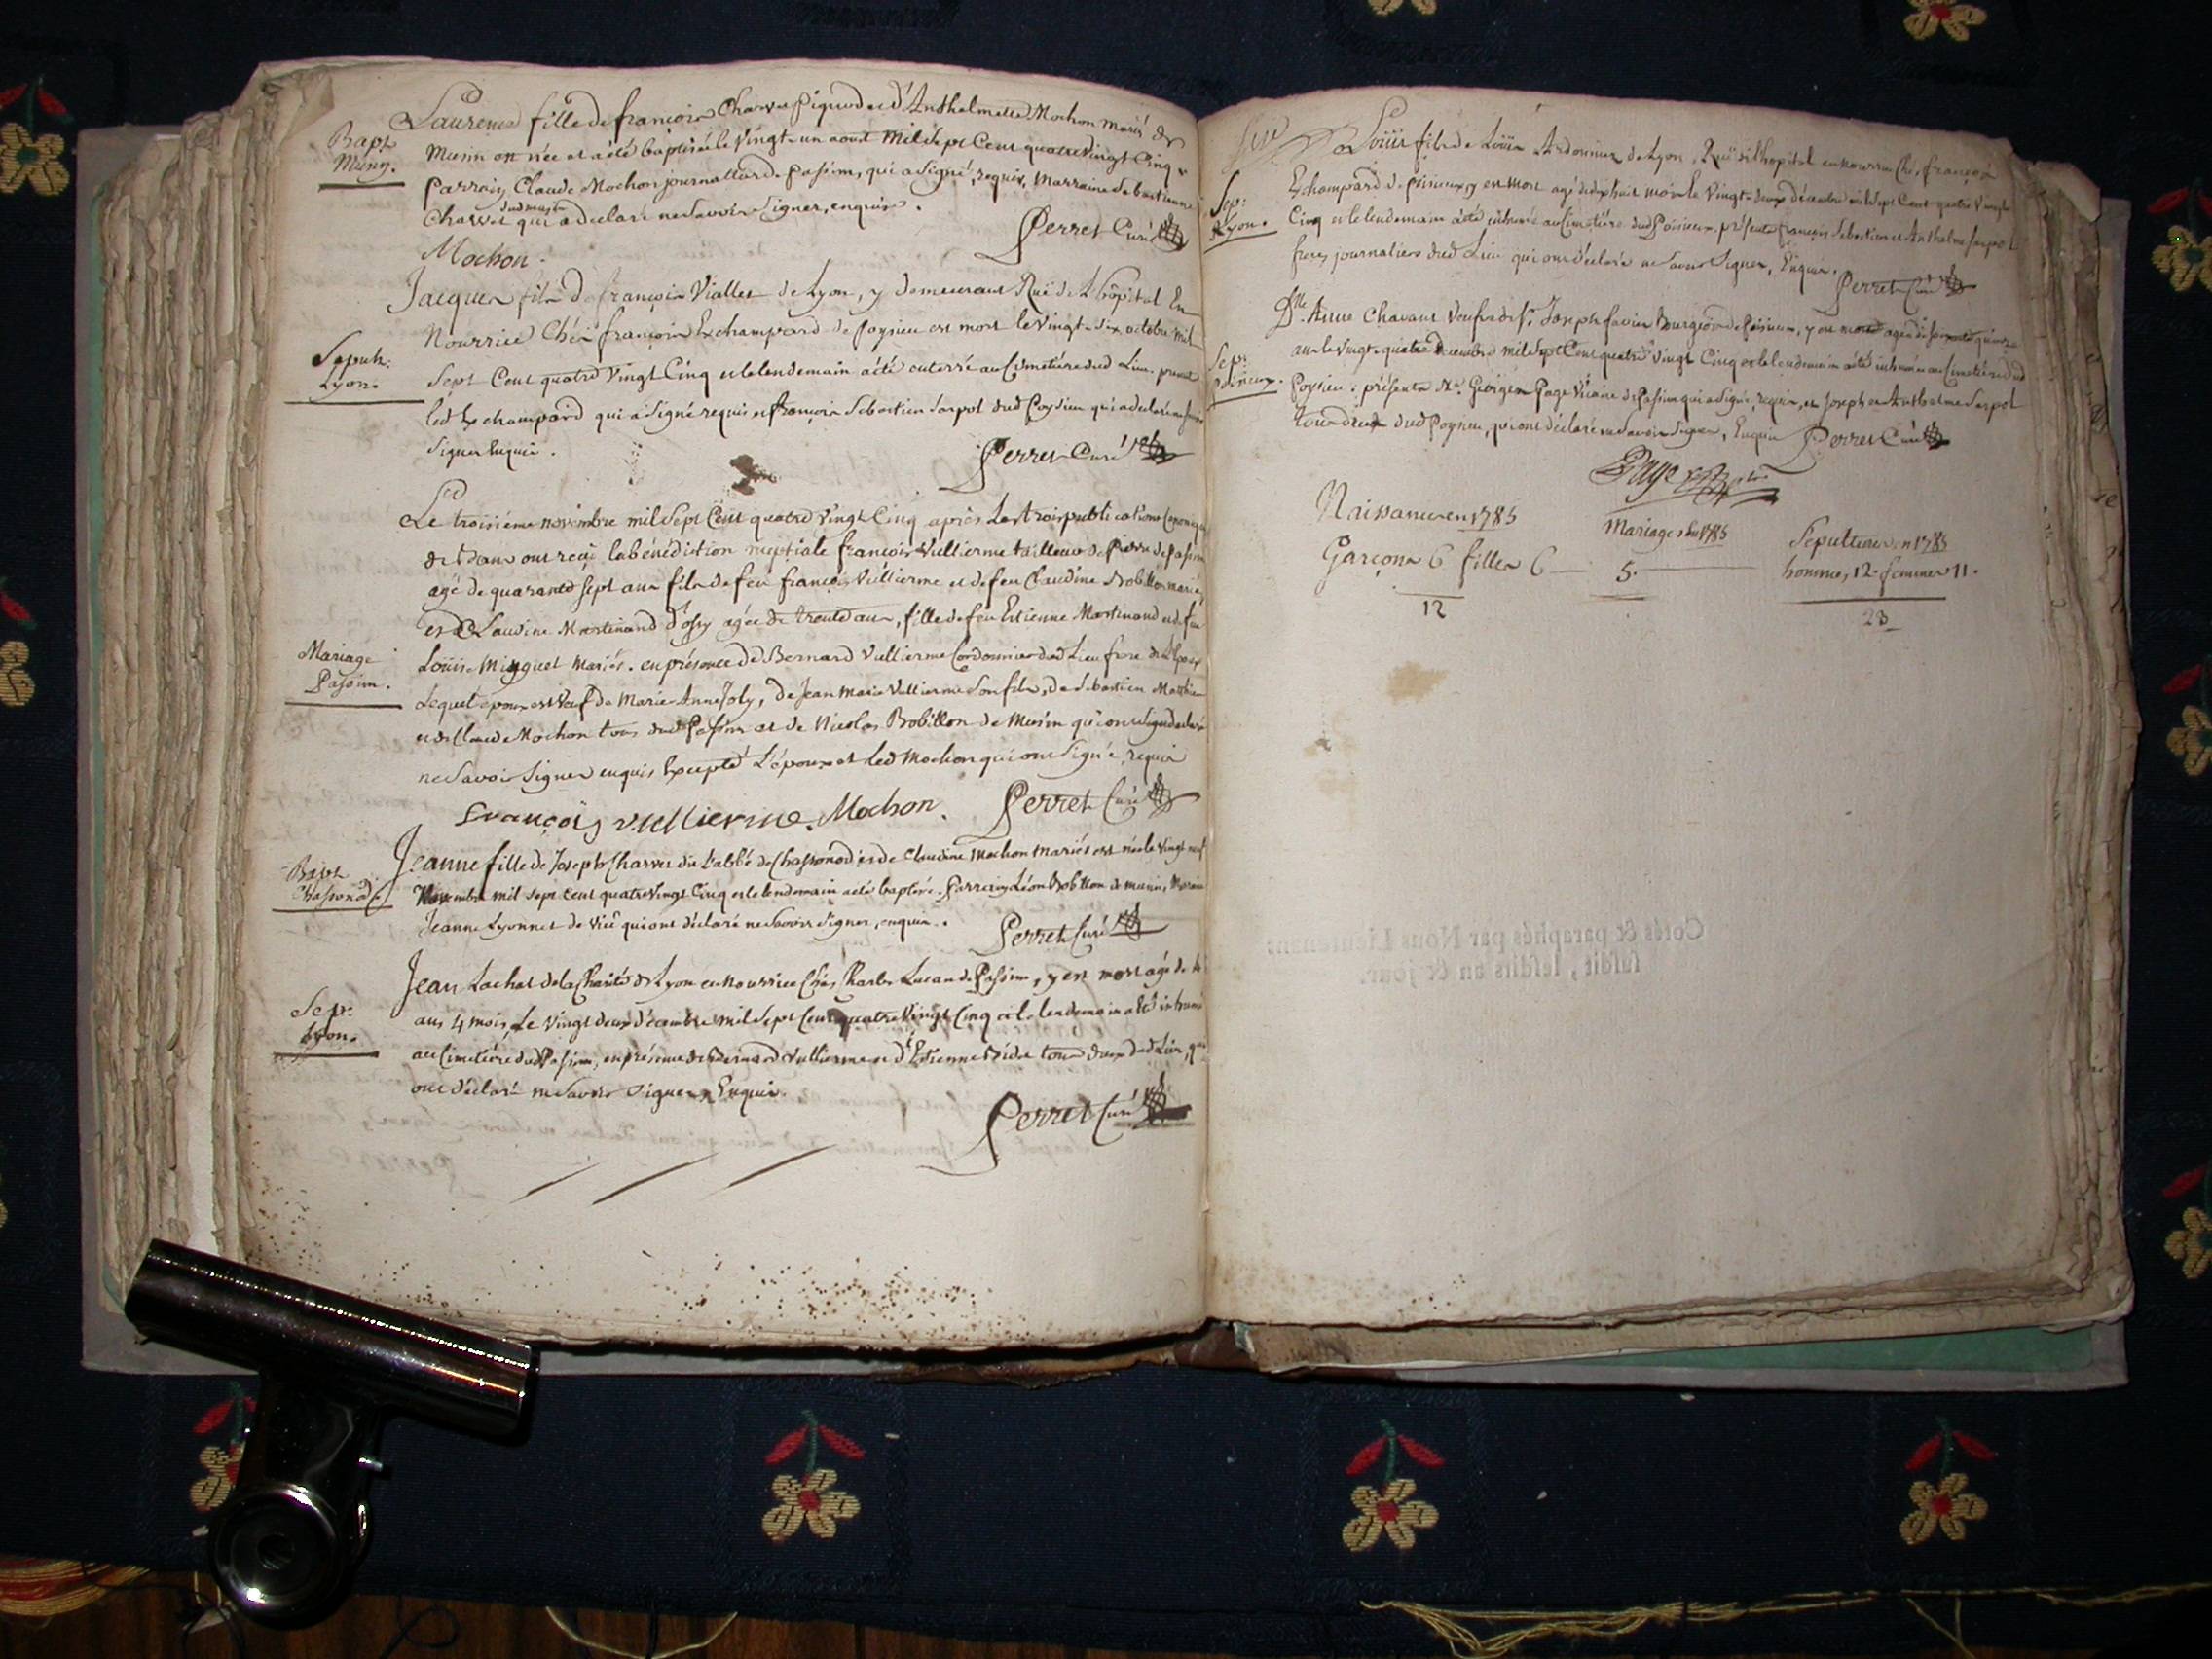 Bapt
Musin.
Laurence fille de françois Charvet Piquod et d'Anthelmette Mochon mariés de
Musin est née et a été baptisée le vingt-un aout mil sept Cent quatre vingt Cinq
parrain Claude Mochon journallard de passins, qui a signé, requis, marraine Sebastienne
dud musin
Charvet qui a declaré ne savoir signer, enquise.
Perret Curé
Mochon.
Sepult:
Lyon.
Jacques fils de françois Viallet de Lyon, y demeurant Ruë de L'hôpital En
Nourrice Chés françois Echampard de Poysieu est mort le vingt-six octobre mil
Sept Cent quatre vingt Cinq et le lendemain a été enterré au Cimetiére dud Lieu. présent
led Echampard qui a signé requis et françois Sebastien Serpol dud Poysieu qui a declaré ne savoir
signer Enquis.
Perret Curé
Le troisiéme novembre mil sept Cent quatre vingt Cinq après les trois publications Canoniques
ont reçu la bénédiction nuptiale françois Vullierme tailleur de Pierre de passin
agé de quarante sept ans fils de feu françois Vullierme et de feu Claudine Bobillon mariés,
et Claudine Martinand d'ossy agée de trente ans, fille de feu Estienne Martinand et de feu
Mariage
Passin.
Louise Minguet mariés. en présence de Bernard Vullierme Cordonnier dud Lieu frere de L'Epoux
Lequel epoux est veuf de Marie Anne Joly, de Jean Marie Vullierme son fils, de Sebastien Mathieu
et de Claude Mochon tous dud Passins et de Nicolas Bobillon de Musin qui ont déclaré
ne savoir signer enquis Excepté L'époux et led Mochon qui ont signé, requis
françois vullierme. Mochon. Perret Curé
Bapt
Chassonod
Jeanne fille de Joseph Charvet dit L'abbé de Chassonod et de Claudine Mochon mariés est née le vingt neuf
Novembre mil sept Cent quatre vingt Cinq et le lendemain a été baptisée. parrain Léon Bobillon de musin, Maraine
Jeanne Lyonnet de Viû qui ont déclaré ne savoir signer, enquis.
Perret Curé
Sep:
Lyon.
Jean Lachat de la Charité de Lyon en Nourrice Chés Charles Lucan de Passins, y est mort agé de
ans 4 mois, Le vingt deux décembre mil Sept Cent quatre vingt Cinq et le lendemain a été inhumé
au Cimetiére dud Passins, en présence de Bernard Vullierme et d'Estienne tous deux dud Lieu, qui
ont déclaré ne savoir signer, Enquis.
Perret Curé
Sep:
Lyon.
Loüis fils de Loüis Ardouin de Lyon, Ruë de l'hopital en nourrice Chés françois
Echampard de poisieux, y est mort agé de dix huit mois le vingt-deux décembre mil Sept Cent quatre vingt
Cinq et le lendemain a été inhumé au Cimetiére dud Poisieux. présents françois Sebastien et Anthelme Serpol
freres journaliers dud Lieu qui ont déclaré ne savoir signer, Enquis.
Perret Curé
Sep:
Poisieux.
Dlle Anne Chavant Veuve de Sr. Joseph favier Bourgeois de Poisieux, y est morte agée de soixante quinze
ans le vingt-quatre decembre mil Sept Cent quatre vingt Cinq et le lendemain a été inhumée au Cimetiére dud
Poysieu: présents Mr. Georges Page Vicaire de Passin qui a signé, requis, et Joseph et Anthelme Serpol
tous deux dud Poysieu, qui ont déclaré ne savoir signer, Enquis Perret Curé
Page
Naissances en 1785
Mariages En 1785
Sepultures en 1785
Garçons 6 filles 6
5.
hommes, 12. femmes 11.
12
23
Cotés & paraphés par Nous Lieutenant
susdit, lesdits an & jour.